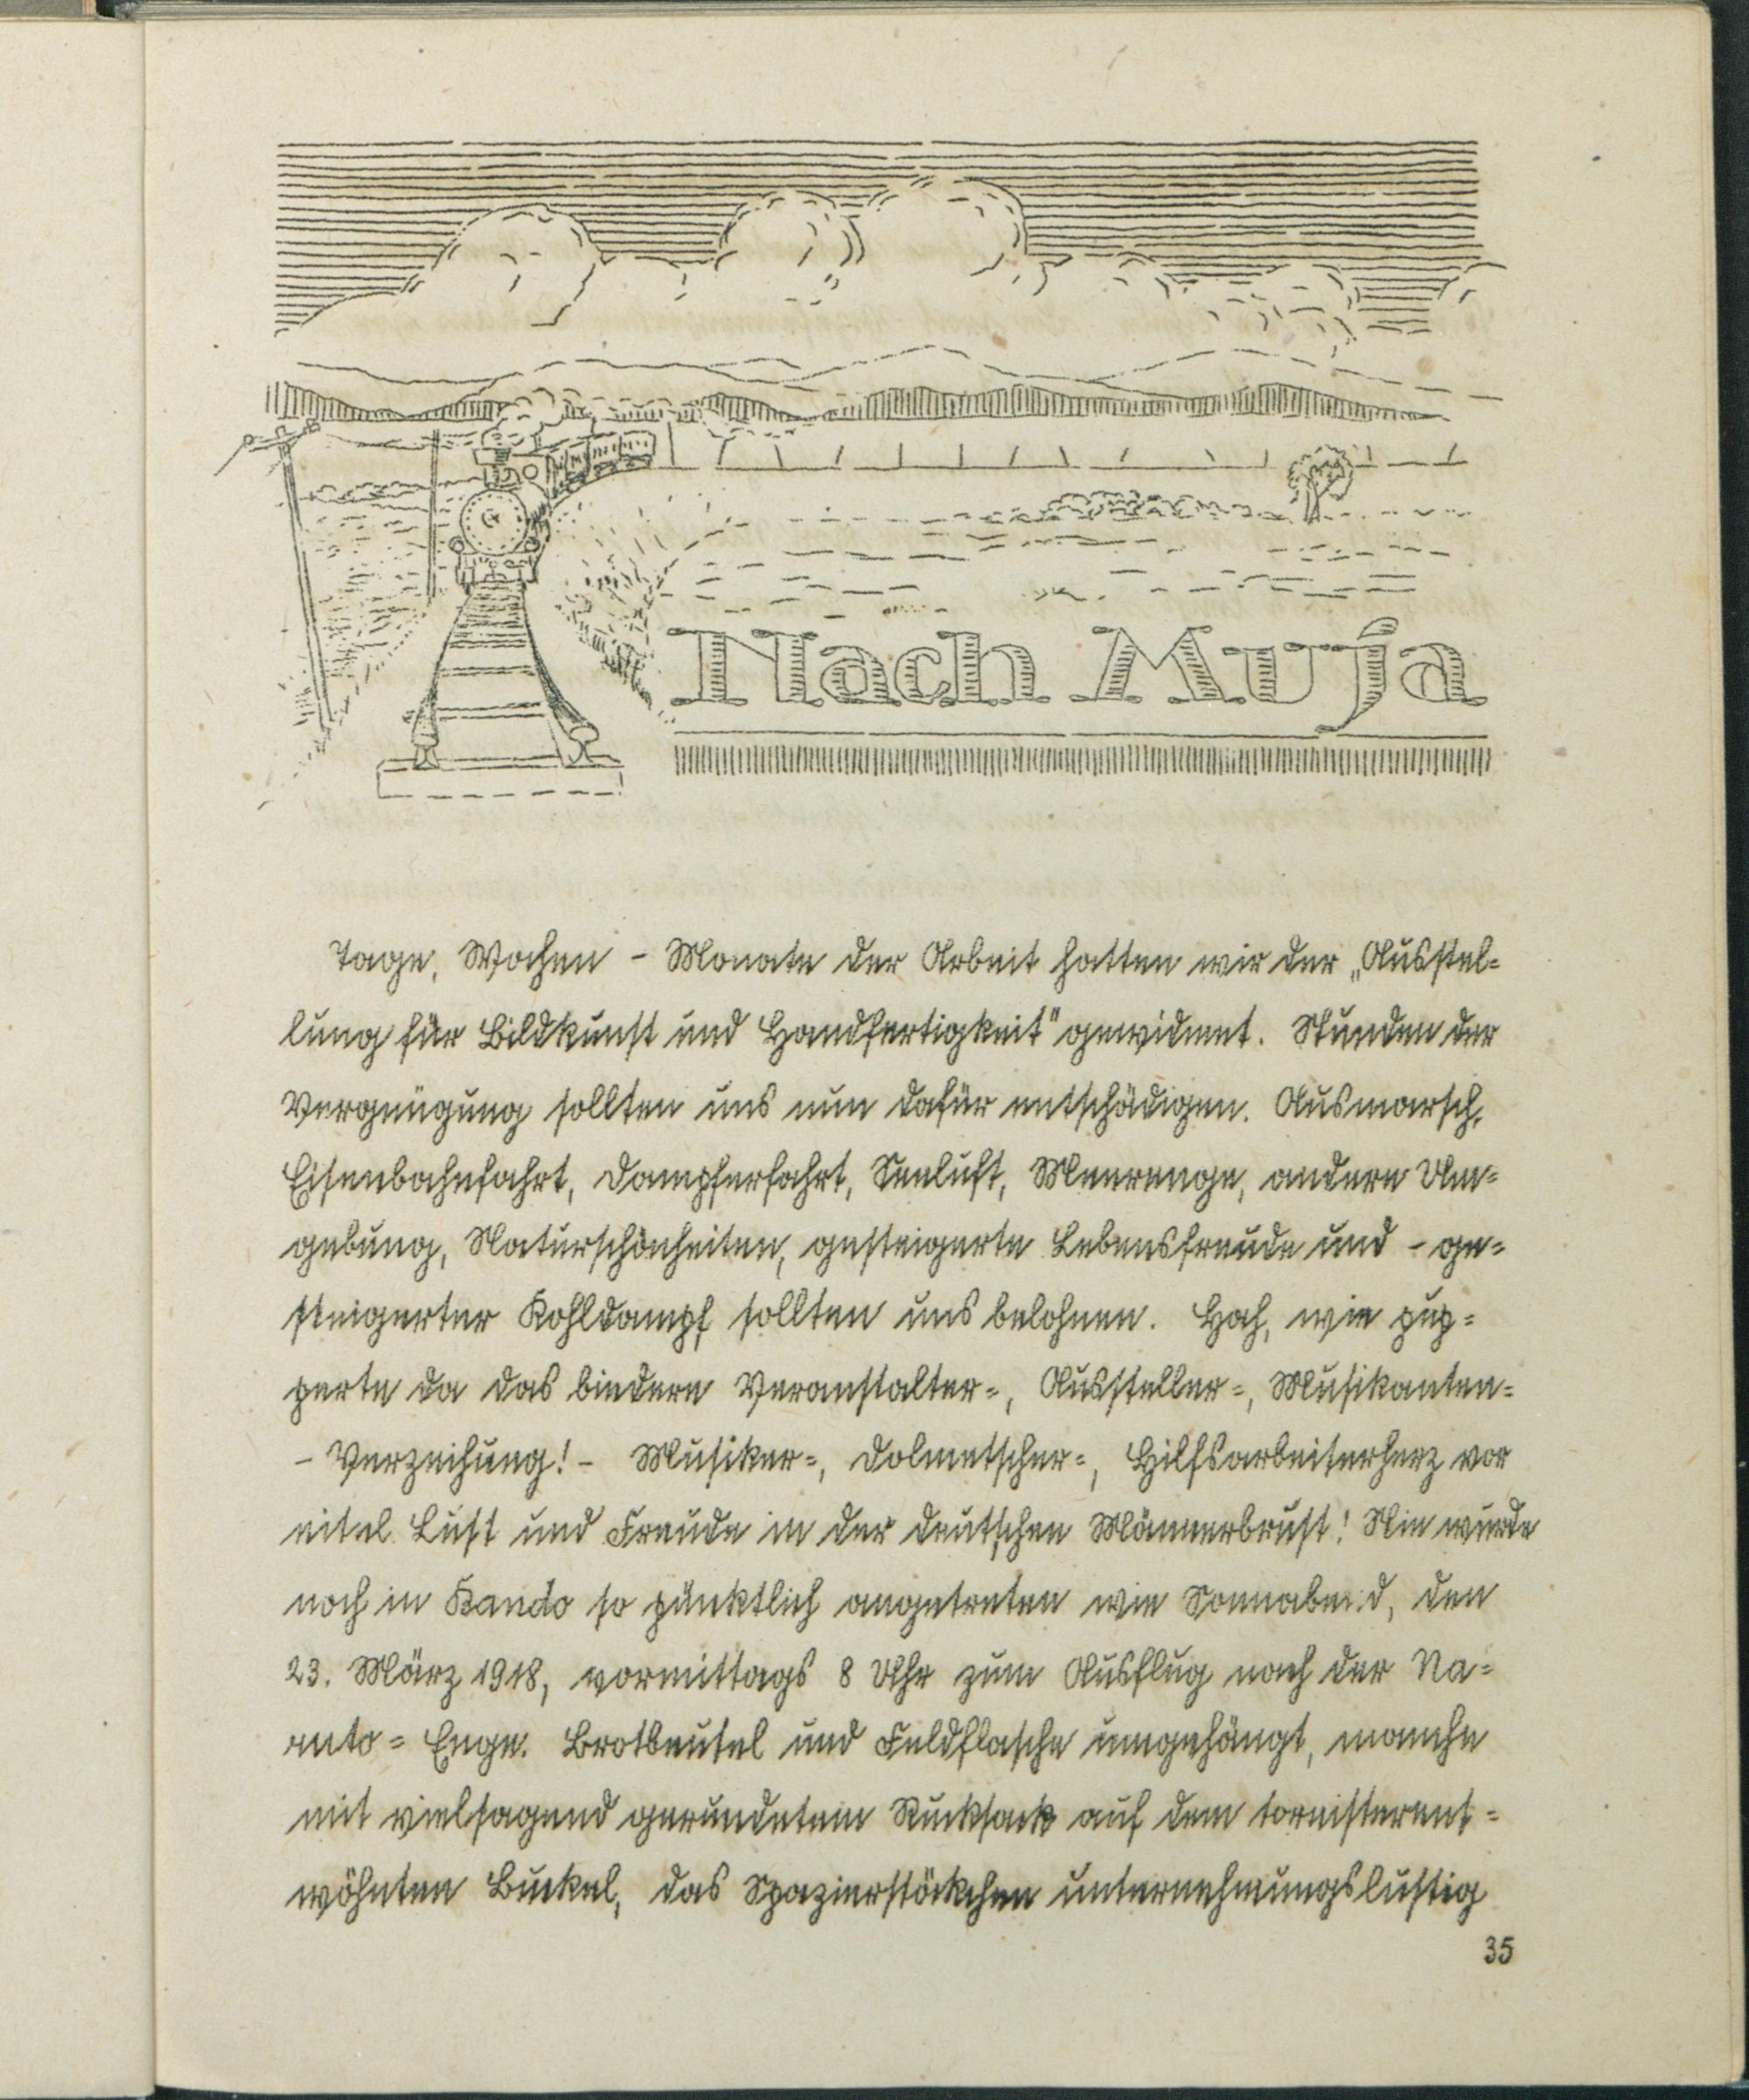 Nach Muja
Tage, Wochen - Monate der Arbeit hatten wir der „Ausstel-
lung für Bildkunst und Handfertigkeit" gewidmet. Stunden der
Vergnügung sollten uns nun dafür entschädigen. Ausmarsch,
Eisenbahnfahrt, Dampferfahrt, Seeluft, Meerenge, andere Um-
gebung, Naturschönheiten, gesteigerte Lebensfreude und - ge-
steigerter Kohldampf sollten uns belohnen. Hach, wie pup-
perte da das biedere Veranstalter-, Aussteller-, Musikanten-
- Verzeihung! - Musiker-, Dolmetscher-, Hilfsarbeiterherz vor
eitel Lust und Freude in der deutschen Männerbrust! Nie wurde
noch in Bando so pünktlich angetreten wie Sonnabend, den
23. März 1918, vormittags 8 Uhr zum Ausflug nach der Na-
ruto-Enge. Brotbeutel und Feldflasche umgehängt, manche
mit vielsagend gerundetem Rucksack auf dem tornisterent-
wöhnten Buckel, das Spazierstöckchen unternehmungslustig
35